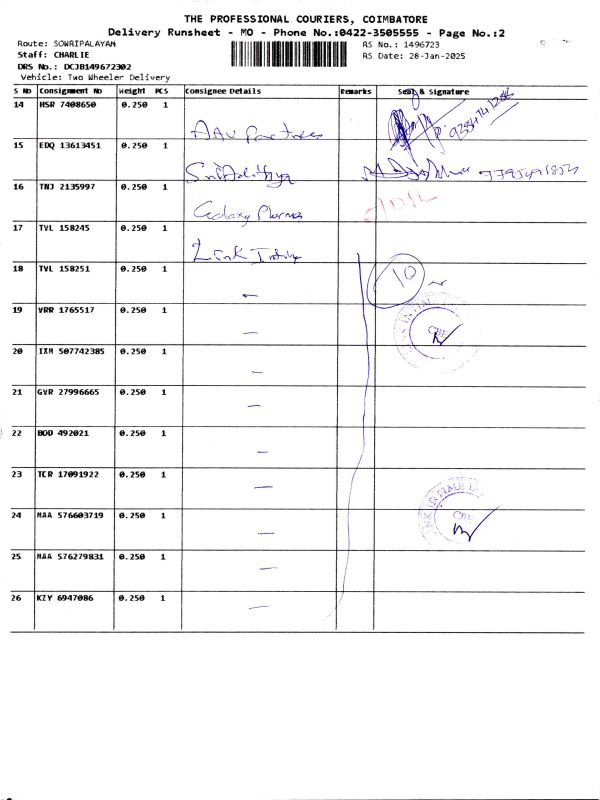 THE PROFESSIONAL COURIERS, COIMBATORE
Delivery Runsheet - MO - Phone No.:0422-3505555 - Page No.:2
Route: SOWRIPALAYAM
RS No.: 1496723
Staff: CHARLIE
RS Date: 28-Jan-2025
DRS No.: DCJB149672302
Vehicle: Two Wheeler Delivery
S No Consignment No Weight PCS Consignee Details Remarks Seal & Signature
14 HSR 7408650 0.250 1
15 EDQ 13613451 0.250 1
16 TNJ 2135997 0.250 1 Galaxy Pharma
17 TVL 158245 0.250 1 Link Intime
18 TVL 158251 0.250 1 — 10
19 VRR 1765517 0.250 1 —
20 IXM 507742385 0.250 1 —
21 GVR 27996665 0.250 1 —
22 BDD 492021 0.250 1 —
23 TCR 17091922 0.250 1 —
24 MAA 576603719 0.250 1 —
25 MAA 576279831 0.250 1 —
26 KZY 6947086 0.250 1 —